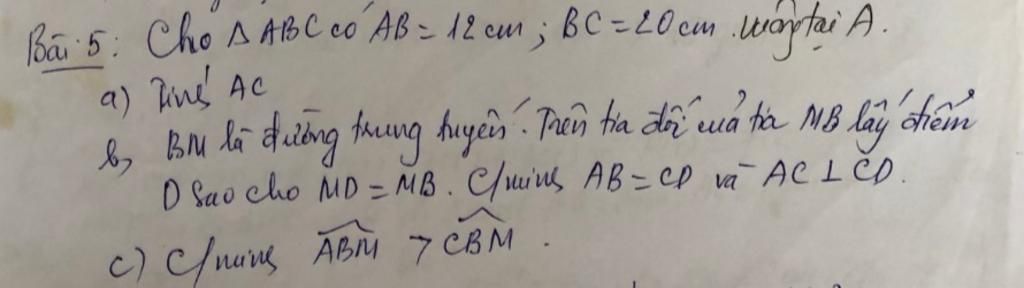 Bài 5: Cho Δ ABC có AB = 12 cm ; BC = 20 cm . vuông tại A.
a) Tính AC
b) BM là đường trung tuyến. Trên tia đối của tia MB lấy điểm
D sao cho MD = MB. C/minh AB = CD và AC ⊥ CD.
c) C/minh \widehat{ABM} > \widehat{CBM} .